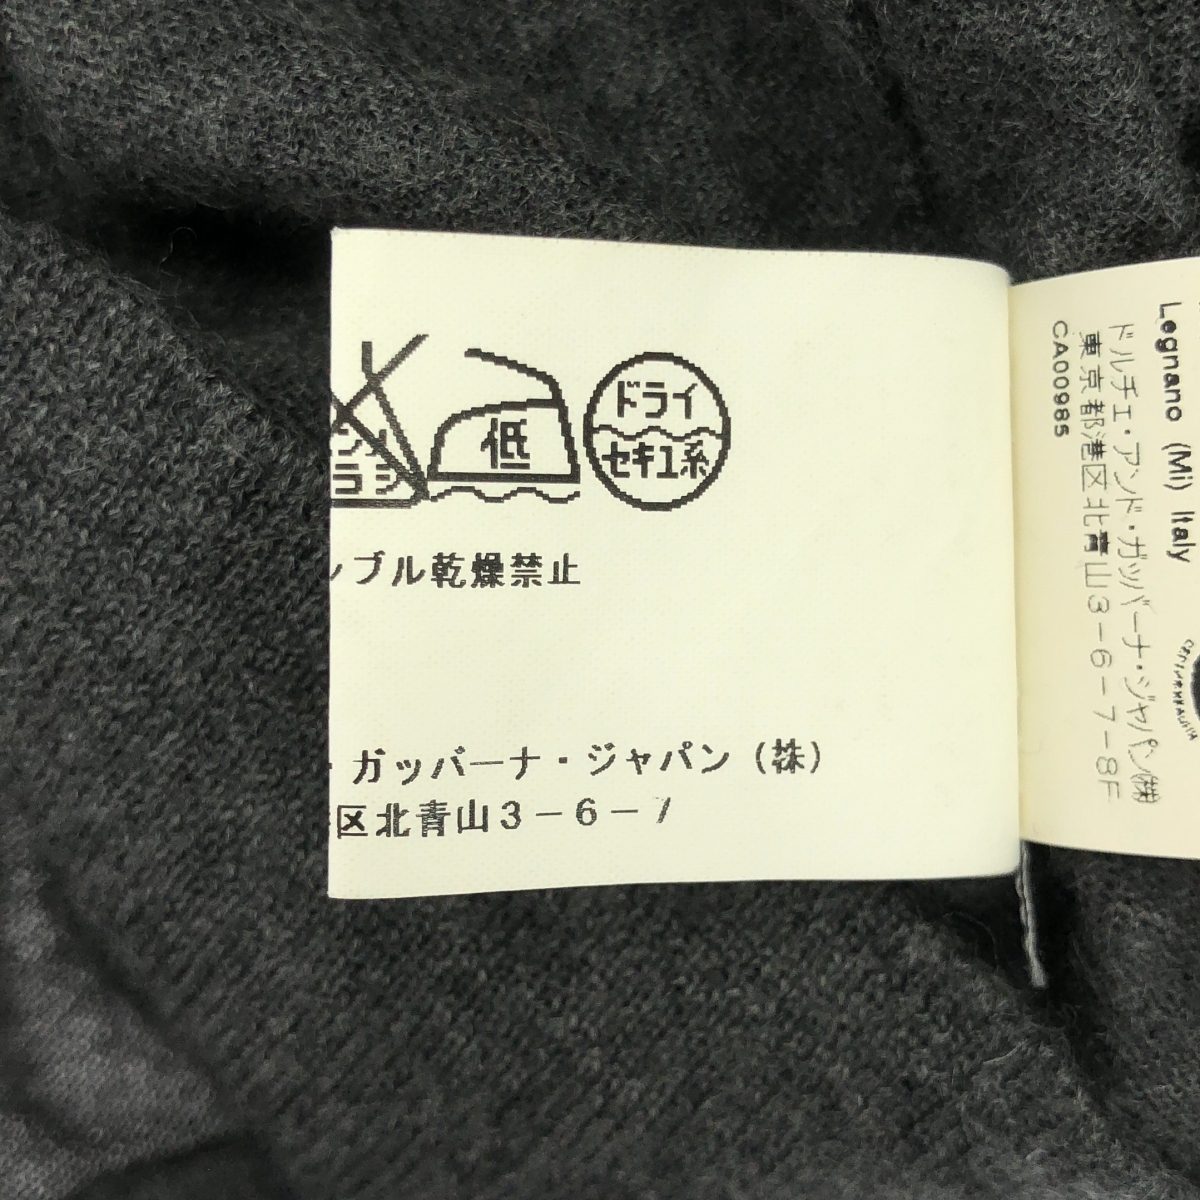 低
ドライ
セキユ系
ブル乾燥禁止
・ガッバーナ・ジャパン(株)
区北青山3-6-7
Legnano (Mi) Italy
ドルチェ・アンド・ガッバーナ・ジャパン㈱
東京都港区北青山3-6-7-8F
CA00985